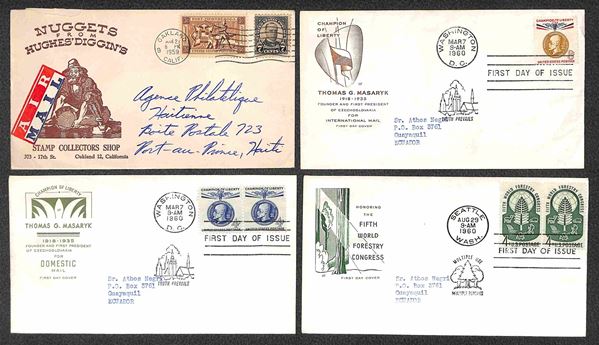 NUGGETS
FROM
HUGHES' DIGGIN'S
AIR
MAIL
STAMP COLLECTORS SHOP
313 - 17th St. Oakland 12, California
OAKLAND
AUG 21
1959
CALIF.
FORT DUQUESNE
7 CENTS 7
Agence Philatélique
Haïtienne
Boîte Postale 723
Port-au-Prince, Haiti
CHAMPION
OF
LIBERTY
THOMAS G. MASARYK
1918 - 1935
FOUNDER AND FIRST PRESIDENT
OF CZECHOSLOVAKIA
FOR
INTERNATIONAL MAIL
FIRST DAY COVER
WASHINGTON
MAR 7
9-AM
1960
D. C.
CHAMPION OF LIBERTY
UNITED STATES POSTAGE
FIRST DAY OF ISSUE
TRUTH PREVAILS
Sr. Athos Negri
P.O. Box 3761
Guayaquil
ECUADOR
CHAMPION OF LIBERTY
THOMAS G. MASARYK
1918 - 1935
FOUNDER AND FIRST PRESIDENT
OF CZECHOSLOVAKIA
FOR
DOMESTIC
MAIL
FIRST DAY COVER
WASHINGTON
MAR 7
9-AM
1960
D. C.
CHAMPION OF LIBERTY
CHAMPION OF LIBERTY
FIRST DAY OF ISSUE
TRUTH PREVAILS
Sr. Athos Negri
P.O. Box 3761
Guayaquil
ECUADOR
HONORING
THE
FIFTH
WORLD
FORESTRY
CONGRESS
FIRST DAY COVER
SEATTLE
AUG 29
9-AM
1960
WASH.
FIFTH WORLD FORESTRY CONGRESS
4¢ U.S. POSTAGE
FIRST DAY OF ISSUE
MULTIPLE USE
Sr. Athos Negri
P.O. Box 3761
Guayaquil
ECUADOR